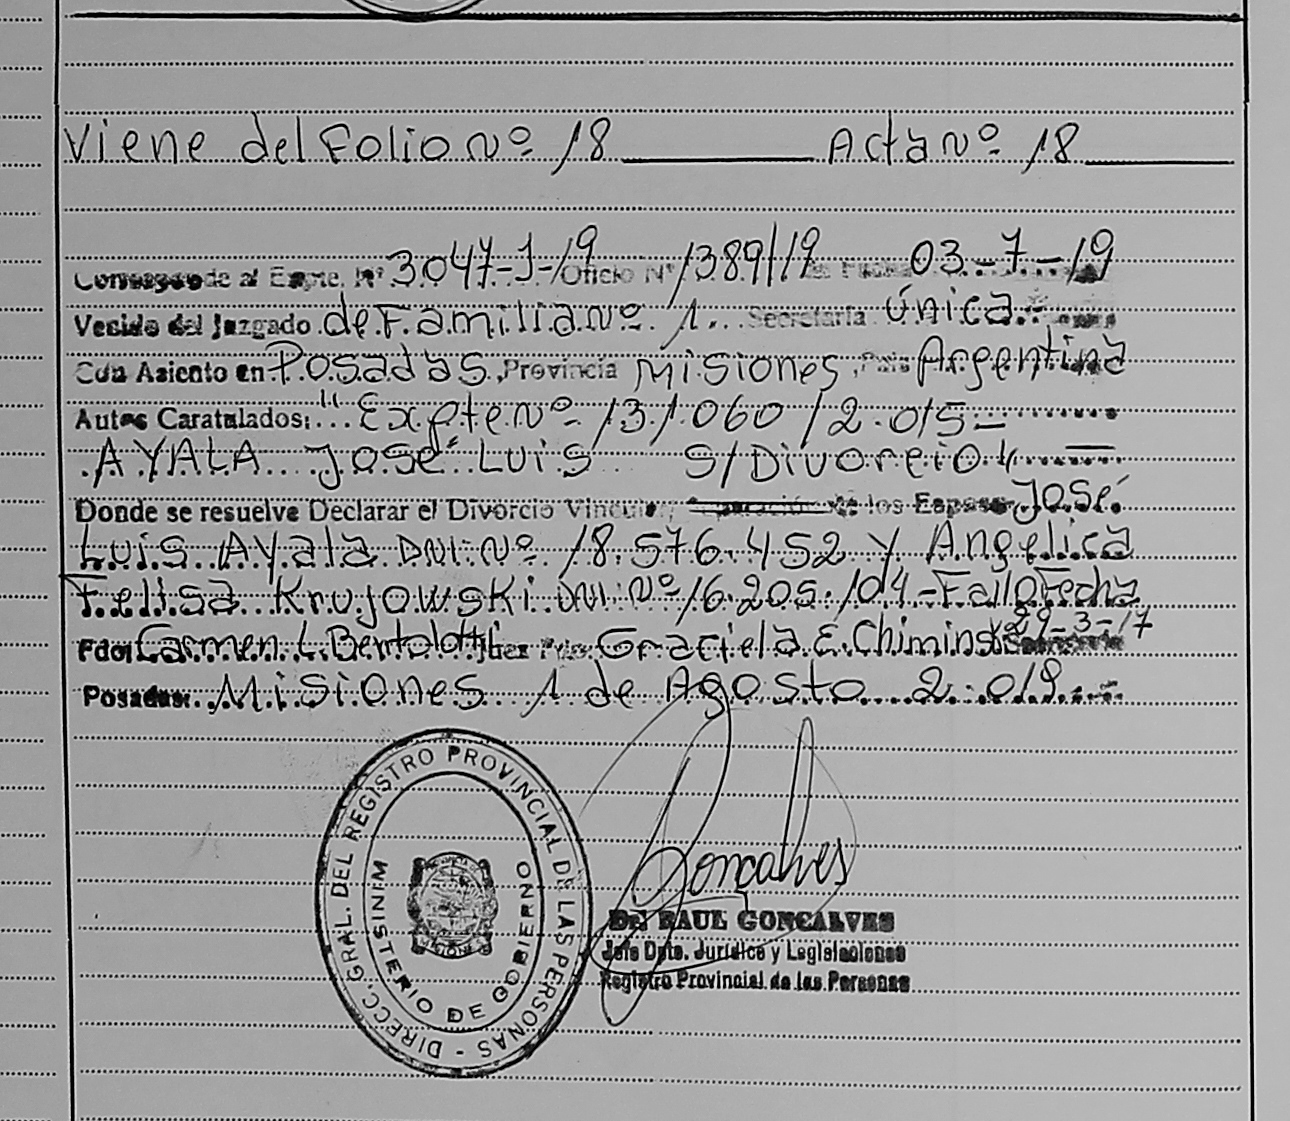 Viene del Folio Nº 18 Acta Nº 18
Corresponde al Expte. Nº 3047-J-19 Oficio Nº 1389/19 de Fecha 03-7-19
Venido del Juzgado de Familia Nº 1. Secretaría Única
Con Asiento en Posadas, Provincia Misiones, País Argentina
Autos Caratulados: "Expte Nº 131.060/2.015-
AYALA José Luis S/Divorcio"
Donde se resuelve Declarar el Divorcio Vincular de los Esposos José
Luis Ayala DNI. Nº 18.576.452 y Angelica
Felisa Krujowski DNI Nº 16.205.104-Fallo Fecha
29-3-17
Fdo: Carmen L. Bertolotti Juez Graciela E. Chiminski
Posadas: Misiones 1 de Agosto 2.019
DIRECC. GRAL. DEL REGISTRO PROVINCIAL DE LAS PERSONAS -
MINISTERIO DE GOBIERNO
MISIONES
Goncalves
Dr. RAUL GONCALVES
Jefe Dpto. Jurídico y Legislaciones
Registro Provincial de las Personas